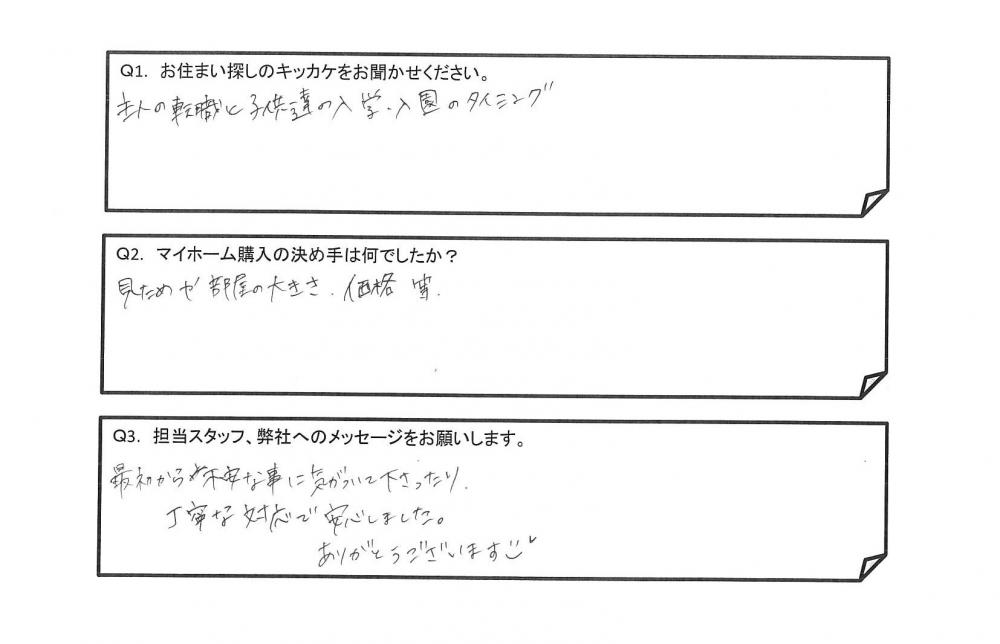 Q1. お住まい探しのキッカケをお聞かせください。
主人の転職と子供達の入学、入園のタイミング
Q2. マイホーム購入の決め手は何でしたか？
見ためや部屋の大きさ、価格 等.
Q3. 担当スタッフ、弊社へのメッセージをお願いします。
最初から不安な事に気がついて下さったり、
丁寧な対応で安心しました。
ありがとうございます